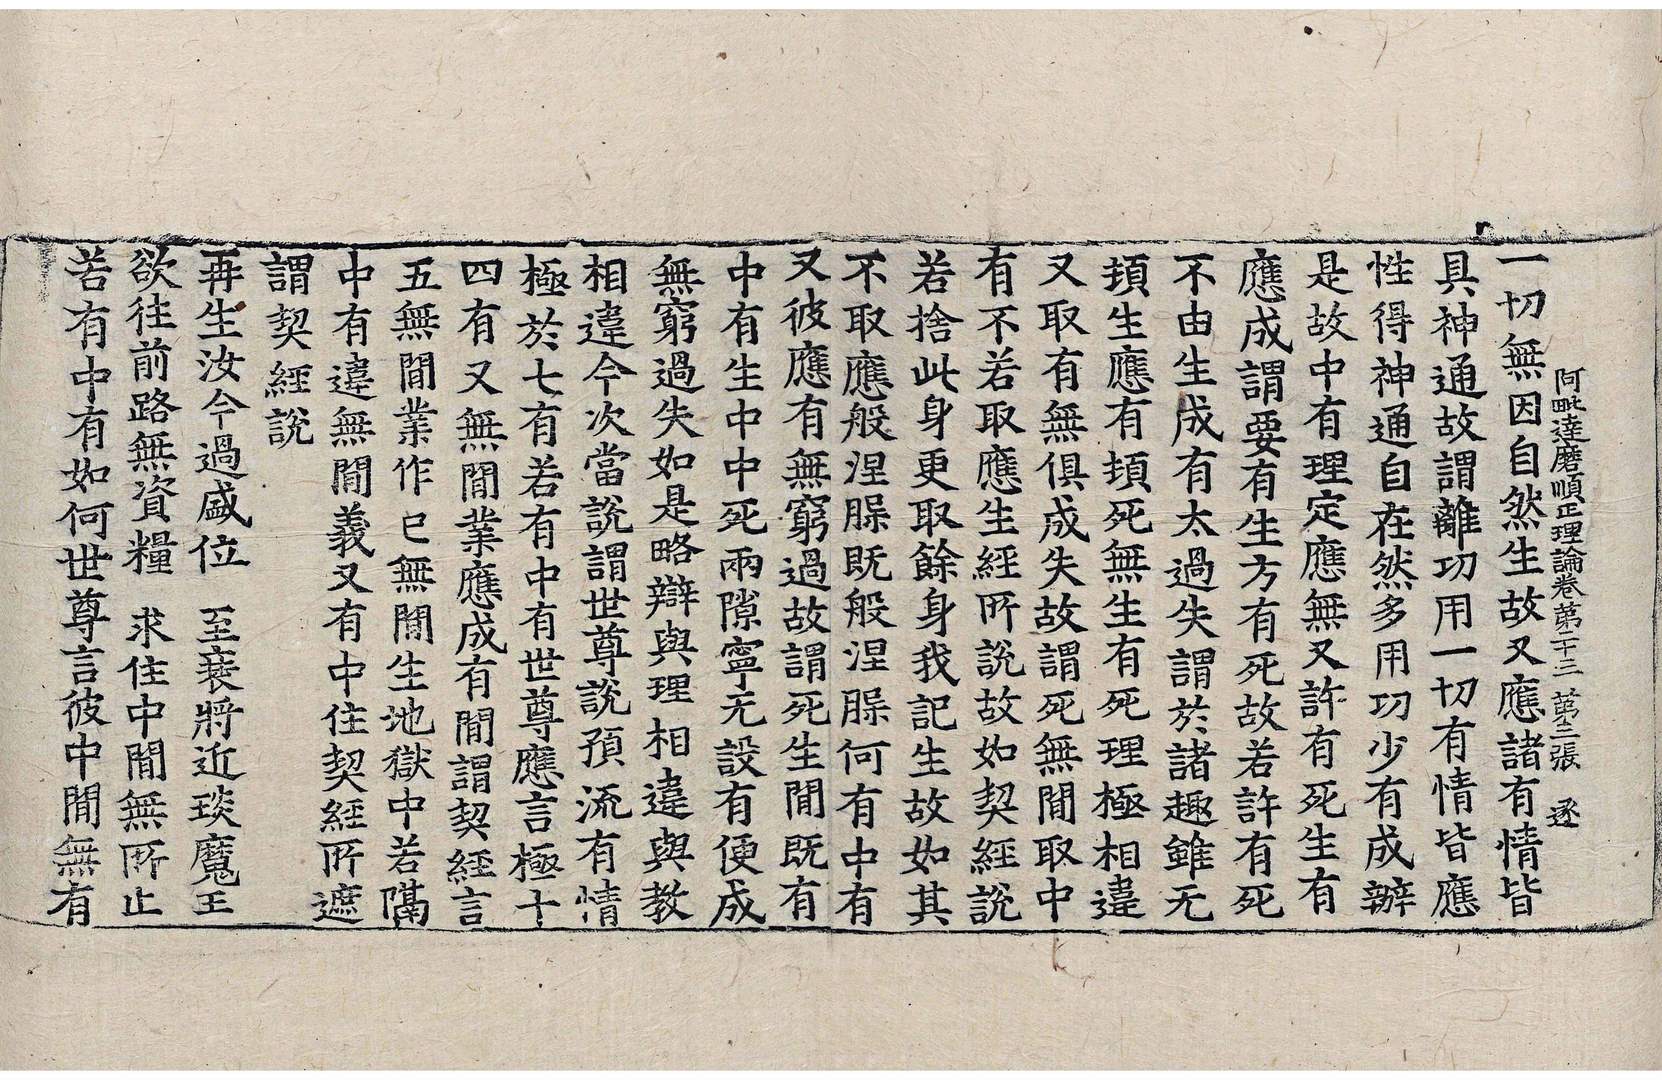 阿毗達磨順正理論卷苐二十三 苐三張 逐
一切無因自然生故又應諸有情皆
具神通故謂離功用一切有情皆應
性得神通自在然多用功少有成辦
是故中有理定應無又許有死生有
應成謂要有生方有死故若許有死
不由生成有太過失謂於諸趣雖无
頓生應有頓死無生有死理極相違
又取有無俱成失故謂死無閒取中
有不若取應生經所說故如契經說
若捨此身更取餘身我記生故如其
不取應般涅膎既般涅膎何有中有
又彼應有無窮過故謂死生閒既有
中有生中中死兩隙寧无設有便成
無窮過失如是略辯與理相違與教
相違今次當說謂世尊說預流有情
極於七有若有中有世尊應言極十
四有又無閒業應成有閒謂契經言
五無閒業作已無閒生地獄中若隔
中有違無閒義又有中住契經所遮
謂契經說
再生汝今過盛位 至衰將近琰魔王
欲往前路無資糧 求住中閒無所止
若有中有如何世尊言彼中閒無有